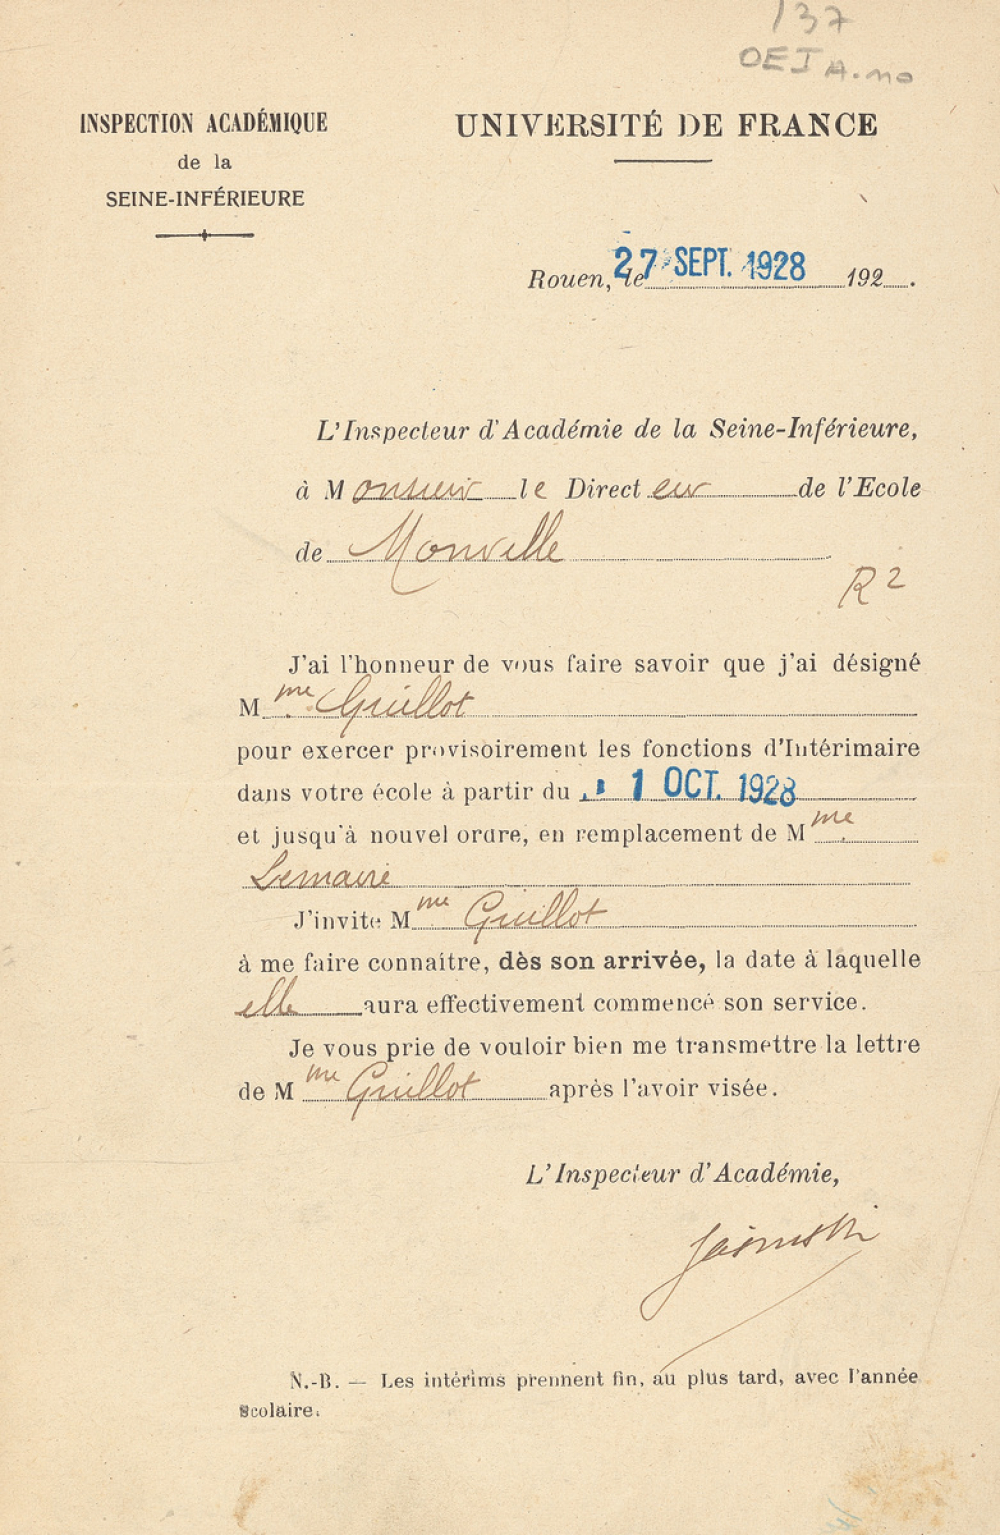 137
OEI A.no
INSPECTION ACADÉMIQUE
de la
SEINE-INFÉRIEURE
UNIVERSITÉ DE FRANCE
Rouen, le 27 SEPT. 1928 192 .
L'Inspecteur d'Académie de la Seine-Inférieure,
à Monsieur le Directeur de l'Ecole
de Monville
R2
J'ai l'honneur de vous faire savoir que j'ai désigné
Mme Guillot
pour exercer provisoirement les fonctions d'Intérimaire
dans votre école à partir du 1 OCT. 1928
et jusqu'à nouvel ordre, en remplacement de Mme
Lemaire
J'invite Mme Guillot
à me faire connaître, dès son arrivée, la date à laquelle
elle aura effectivement commencé son service.
Je vous prie de vouloir bien me transmettre la lettre
de Mme Guillot après l'avoir visée.
L'Inspecteur d'Académie,
N.-B. — Les intérims prennent fin, au plus tard, avec l'année
scolaire.